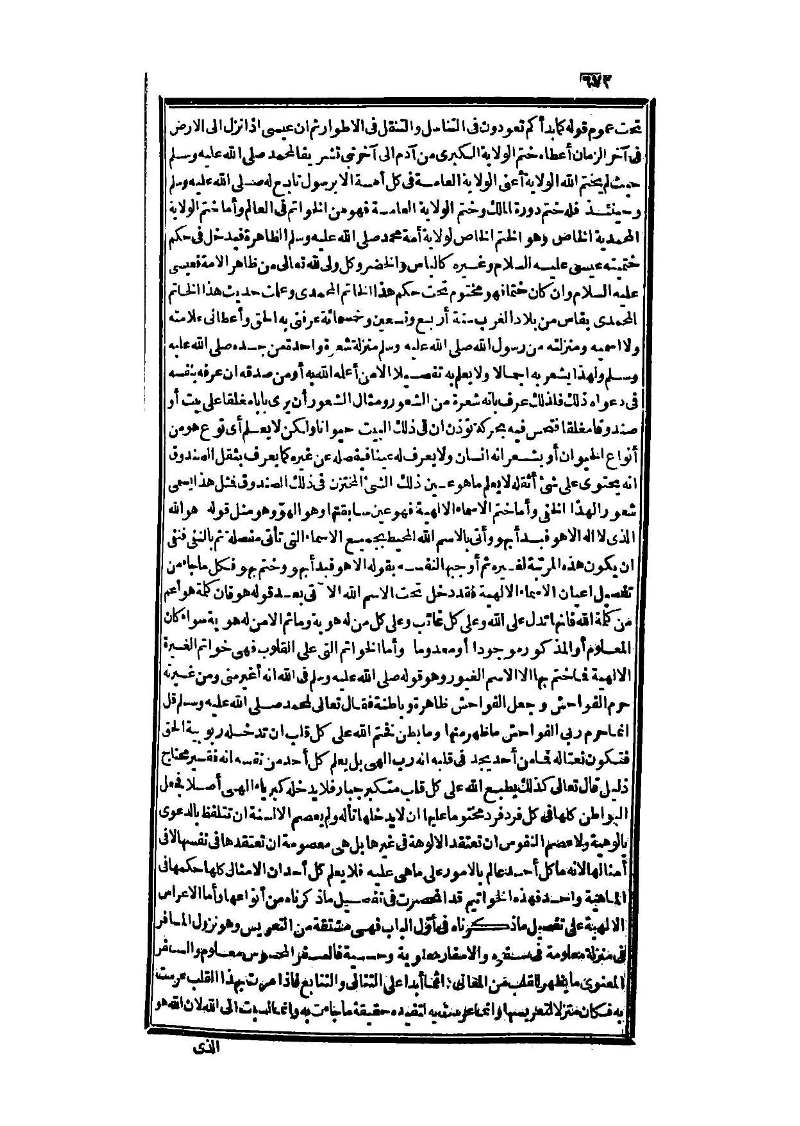 ٦٧٢
تحت عموم قوله كما بدأكم تعودون فى التناسل والتنقل فى الاطوار ثم ان عيسى اذا نزل الى الارض
فى آخر الزمان أعطاه ختم الولاية الكبرى من آدم الى آخر نبى تشريفا لمحمد صلى الله عليه وسلم
حيث لم يختم الله الولاية أعنى الولاية العامة فى كل أمة الا برسول تابع له صلى الله عليه وسلم
وحينئذ فله ختم دورة الملك وختم الولاية العامة فهو من الخواتم فى العالم وأما ختم الولاية
المحمدية الخاص وهو الختم الخاص لولاية أمة محمد صلى الله عليه وسلم الظاهرة فيدخل فى حكم
ختميته عيسى عليه السلام وغيره كالياس والخضر وكل ولى لله تعالى من ظاهر الامة فعيسى
عليه السلام وان كان ختما فهو مختوم تحت حكم هذا الخاتم المحمدى وعلمت حديث هذا الخاتم
المحمدى بفاس من بلاد الغرب سنة أربع وتسعين وخسمائة عرفنى به الحق وأعطانى علامته
ولا اسميه ومنزلته من رسول الله صلى الله عليه وسلم منزلة شعرة واحدة من جسده صلى الله عليه
وسلم ولهذا يشعر به اجمالا ولا يعلم به تفصيلا الا من أعلمه الله به أو من صدقه ان عرفه بنفسه
فى دعواه ذلك فلذلك عرف بانه شعرة من الشعور ومثال الشعور أن يرى بابا مغلقا على بيت أو
صندوقا مغلقا فتحس فيه بحركة تؤذن ان فى ذلك البيت حيوانا ولكن لا يعلم أى نوع هو من
أنواع الحيوان أو يشعر انه انسان ولا يعرف له عينا فيفصله عن غيره كما يعرف بثقل الصندوق
انه يحتوى على شئ أثقله لا يعلم ما هو عين ذلك الشئ المختزن فى ذلك الصندوق فمثل هذا يسمى
شعور الهذا الخفى وأما ختم الاسماء الالهية فهو عين سابقتها وهو الهو وهو مثل قوله هو الله
الذى لا اله الا هو فبدأ بهو وأتى بالاسم الله المحيط بجميع الاسماء التى تأتى مفصلة ثم بالنفى فنفى
ان يكون هذه المرتبة لغيره ثم أوجبها لنفسه بقوله الا هو فبدأ بهو وختم بهو فكل ما جاء من
تفصيل اعيان الاسماء الالهية فقد دخل تحت الاسم الله الآتى بعد قوله هو فان كلمة هو أعم
من كلمة الله فانها تدل على الله وعلى كل غائب وعلى كل من له هوية وما ثم الا من له هوية سواء كان
المعلوم أو المذكور موجودا أو معدوما وأما الخواتم التى على القلوب فهى خواتم الغيرة
الالهية فما ختم بها الا الاسم الغيور وهو قوله صلى الله عليه وسلم فى الله انه أغير منى ومن غيرته
حرم الفواحش وجعل الفواحش ظاهرة وباطنة فقال تعالى لمحمد صلى الله عليه وسلم قل
انما حرم ربى الفواحش ما ظهر منها وما بطن فختم الله على كل قلب ان تدخله ربوبية الحق
فتكون نعتا له فما من أحد يجد فى قلبه انه رب الهى بل يعلم كل أحد من نفسه انه فقير محتاج
ذليل قال تعالى كذلك يطبع الله على كل قلب متكبر جبار فلا يدخله كبرياء الهى أصلا فجعل
البواطن كلها فى كل فرد فرد مختوما عليها ان لا يدخلها تأله ولم يعصم الالسنة ان تتلفظ بالدعوى
بالوهية ولا عصم النفوس ان تعتقد الالوهة فى غيرها بل هى معصومة ان تعتقدها فى نفسها لا فى
أمثالها لانه ما كل أحد عالم بالامور على ما هى عليه فلا يعلم كل أحد ان الامثال كلها حكمها فى
الماهية واحد فهذه الخواتيم قد انحصرت فى تفصيل ما ذكرناه من أنواعها وأما الاعراس
الالهية على تفصيل ما ذكرناه فى أول الباب فهى مشتقة من التعريس وهو نزول المسافر
فى منزلة معلومة فى سفره والاسفار معنوية وحسية فالسفر المحسوس معلوم والسفر
المعنوى ما يظهر للقلب من المعانى دائما أبدا على التتالى والتتابع فاذا مرت بهذا القلب عرست
به فكان منزلا لتعريسها وانما عرست به لتفيده حقيقة ما جاءت به وانما نسبت الى الله لان الله هو
الذى